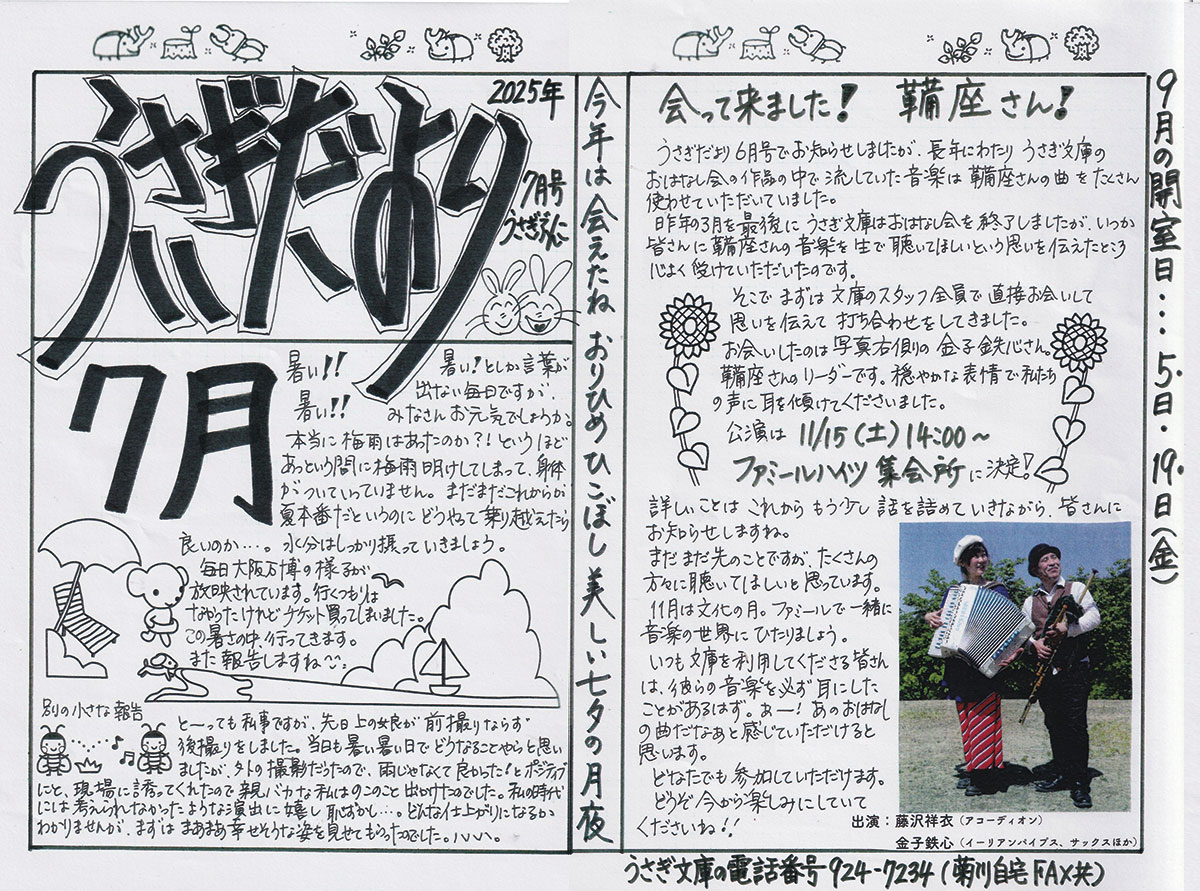 うさぎだより
2025年
7月号
うさぎぶんこ
7月
暑い!!
暑い!!
暑い!としか言葉が
出ない毎日ですが、
みなさんお元気でしょうか。
本当に梅雨はあったのか?!というほど
あっという間に梅雨明けしてしまって、身体
がついていっていません。まだまだこれからが
夏本番だというのにどうやって乗り越えたら
良いのか…。水分はしっかり摂っていきましょう。
毎日大阪万博の様子が
放映されています。行くつもりは
なかったけれどチケット買ってしまいました。
この暑さの中、行ってきます。
また報告しますね
別の小さな報告
とーっても私事ですが、先日上の娘が"前撮りならず
後撮りをしました。当日も暑い暑い日でどうなることやらと思い
ましたが、外の撮影だったので、雨じゃなくて良かった!とポジティブ
にと、現場に誘ってくれたので親バカな私はのこのこと出かけたのでした。私の時代
には考えられなかったような演出に嬉し恥ずかし…。どんな仕上がりになるか
わかりませんが、まずはまあまあ幸せそうな姿を見せてもらったのでした。ハハハ。
今年は会えたね おりひめ ひこぼし 美しい七夕の月夜
会って来ました! 鞴座さん!
うさぎだより6月号でお知らせしましたが、長年にわたり うさぎ文庫の
おはなし会の作品の中で流していた音楽は鞴座さんの曲をたくさん
使わせていただいていました。
昨年の3月を最後に うさぎ文庫はおはなし会を終了しましたが、いつか
皆さんに鞴座さんの音楽を生で聴いてほしいという思いを伝えたところ
心よく受けていただいたのです。
そこで まずは文庫のスタッフ全員で直接お会いして
思いを伝えて打ち合わせをしてきました。
お会いしたのは写真右側りの金子鉄心さん。
鞴座さんのリーダーです。穏やかな表情で私たち
の声に耳を傾けてくださいました。
公演は 11/15(土)14:00~
ファミールハイツ 集会所に決定!
詳しいことは これから もう少し 話を詰めていきながら、皆さんに
お知らせしますね。
まだまだ先のことですが、たくさんの
方々に聴いてほしいと思っています。
11月は文化の月。ファミールで一緒に
音楽の世界にひたりましょう。
いつも文庫を利用してくださる皆さん
は、彼らの音楽を必ず耳にした
ことがあるはず。あー!あのおはなし
の曲だなあと感じていただけると
思います。
どなたでも参加していただけます。
どうぞ今から楽しみにしていて
くださいね!!
出演:藤沢祥衣(アコーディオン)
金子鉄心(イーリアンパイプス、サックスほか)
9月の開室日・・・・5日・19日(金)
うさぎ文庫の電話番号 924-7234(菊川自宅FAX共)